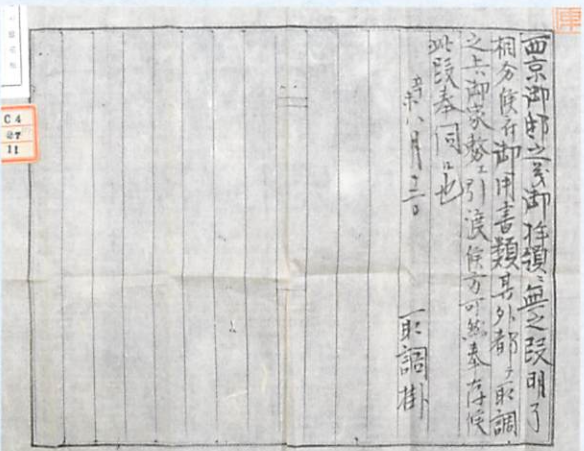 西京御邸之義御拝領ニ無之段明了
相分候ニ付御用書類其外都而取調
之上御家務江引渡候方可然奉存候
此段奉伺候也
辛未八月十三日
取調掛
C4
27
11